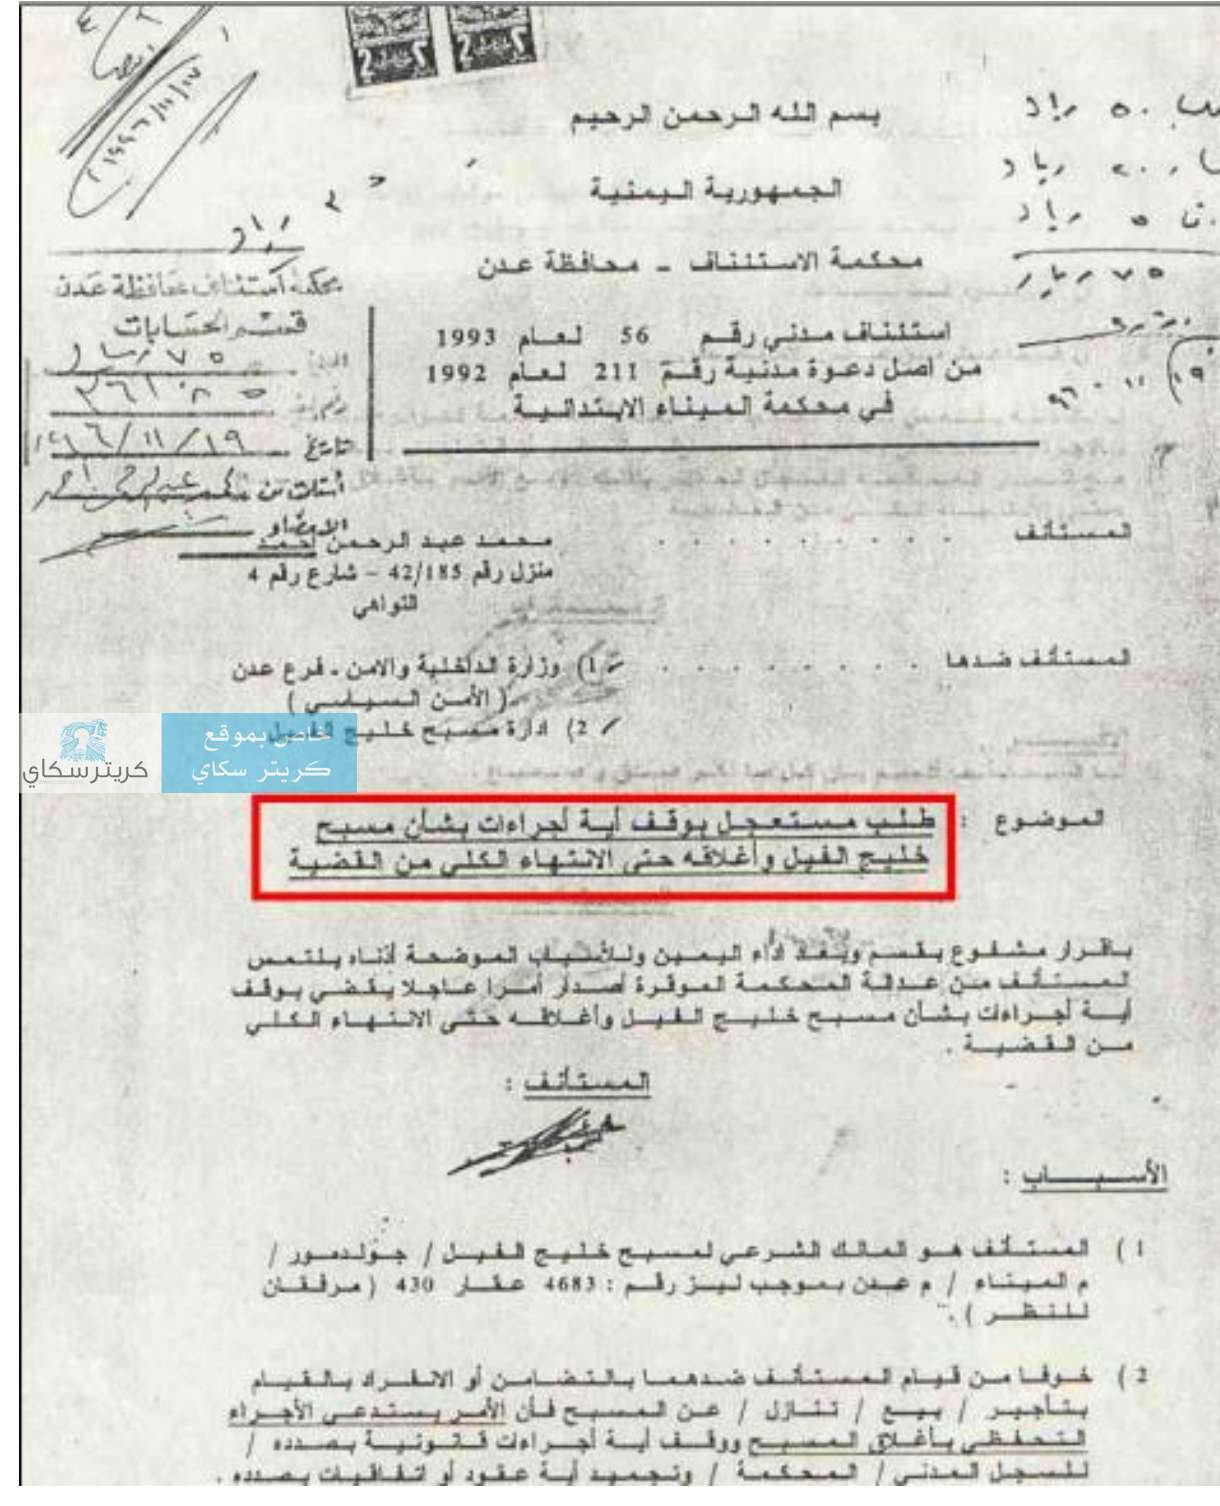 2 ريال 2 ريال
١٩٩٦/١١/١٧
بسم الله الرحمن الرحيم
٥٠ ريال
٢٠ ريال
الجمهورية اليمنية
٥ ريال
محكمة الاستئناف - محافظة عدن
٧٥ ريال
محكمة استئناف محافظة عدن
قسم الحسابات
٧٥ ريال
٣٦١٠٨٥
تاريخ ١٩/١١/
استلمت من
الامضاء
استئناف مدني رقم 56 لعام 1993
من اصل دعوة مدنية رقم 211 لعام 1992
في محكمة الميناء الابتدائية
١٩ - ١١ - ٩٦
المستأنف . . . . . . . . . محمد عبد الرحمن أحمد
منزل رقم 42/185 - شارع رقم 4
التواهي
المستأنف ضدها . . . . . . . . . 1) وزارة الداخلية والامن - فرع عدن
( الأمن السياسي )
2) ادارة مسبح خليج الفيل
خاص بموقع
كريتر سكاي
كريترسكاي
الموضوع : طلب مستعجل بوقف أية أجراءات بشأن مسبح
خليج الفيل وأغلاقه حتى الانتهاء الكلي من القضية
باقرار مشفوع بقسم وبعد أداء اليمين وللأسباب الموضحة أدناه يلتمس
المستأنف من عدالة المحكمة الموقرة أصدار أمرا عاجلا يقضي بوقف
أية أجراءات بشأن مسبح خليج الفيل وأغلاقه حتى الانتهاء الكلي
من القضية .
المستأنف :
الأسباب :
1) المستأنف هو المالك الشرعي لمسبح خليج الفيل / جولدمور /
م الميناء / م عدن بموجب ليز رقم : 4683 عقار 430 ( مرفقان
للنظر ).
2) خوفا من قيام المستأنف ضدهما بالتضامن أو الانفراد بالقيام
بتأجير / بيع / تنازل / عن المسبح فأن الأمر يستدعي الأجراء
التحفظي بأغلاق المسبح ووقف أية أجراءات قانونية بصدده /
للسجل المدني / المحكمة / وتجميد أية عقود أو اتفاقيات بصدده .